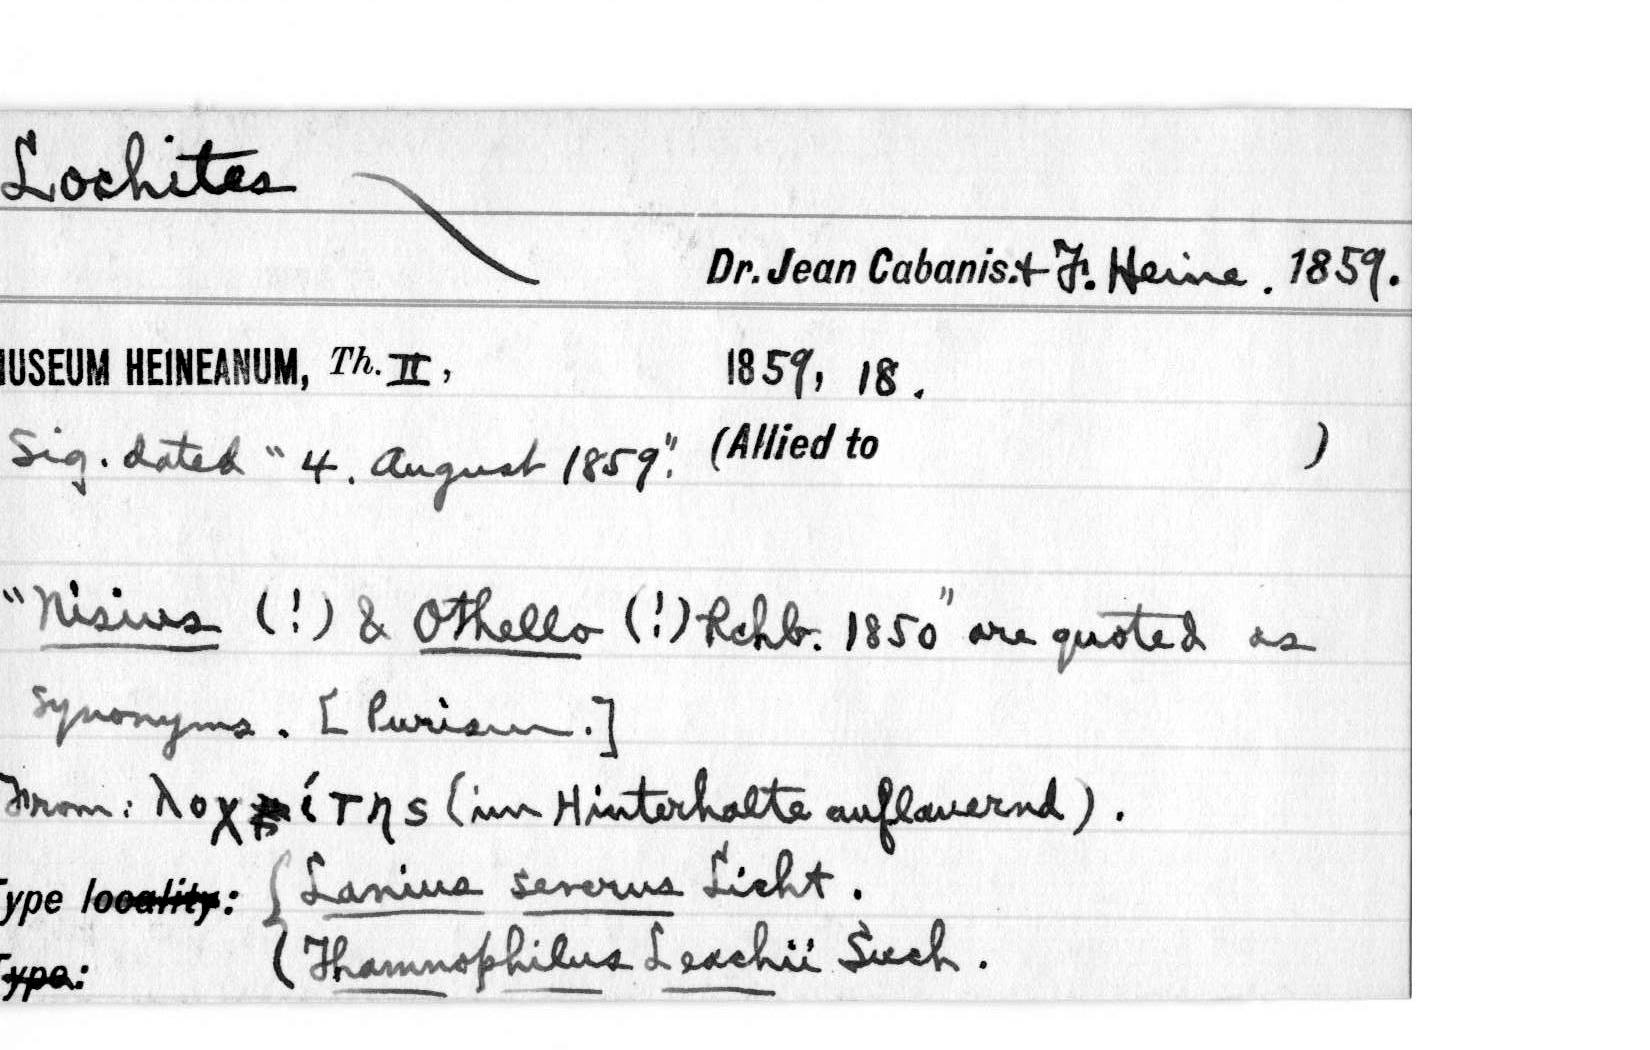 Lochites
Dr. Jean Cabanis. + F. Heine. 1859.
MUSEUM HEINEANUM, Th. II, 1859, 18.
Sig. dated "4. August 1859". (Allied to )
"Nisius (!) & Othello (!) Rchb. 1850" are quoted as
synonyms. [Purism.]
From: λοχίτης (im Hinterhalte auflauernd).
Type locality: { Lanius severus Licht.
Type: ( Thamnophilus Leachii Such.